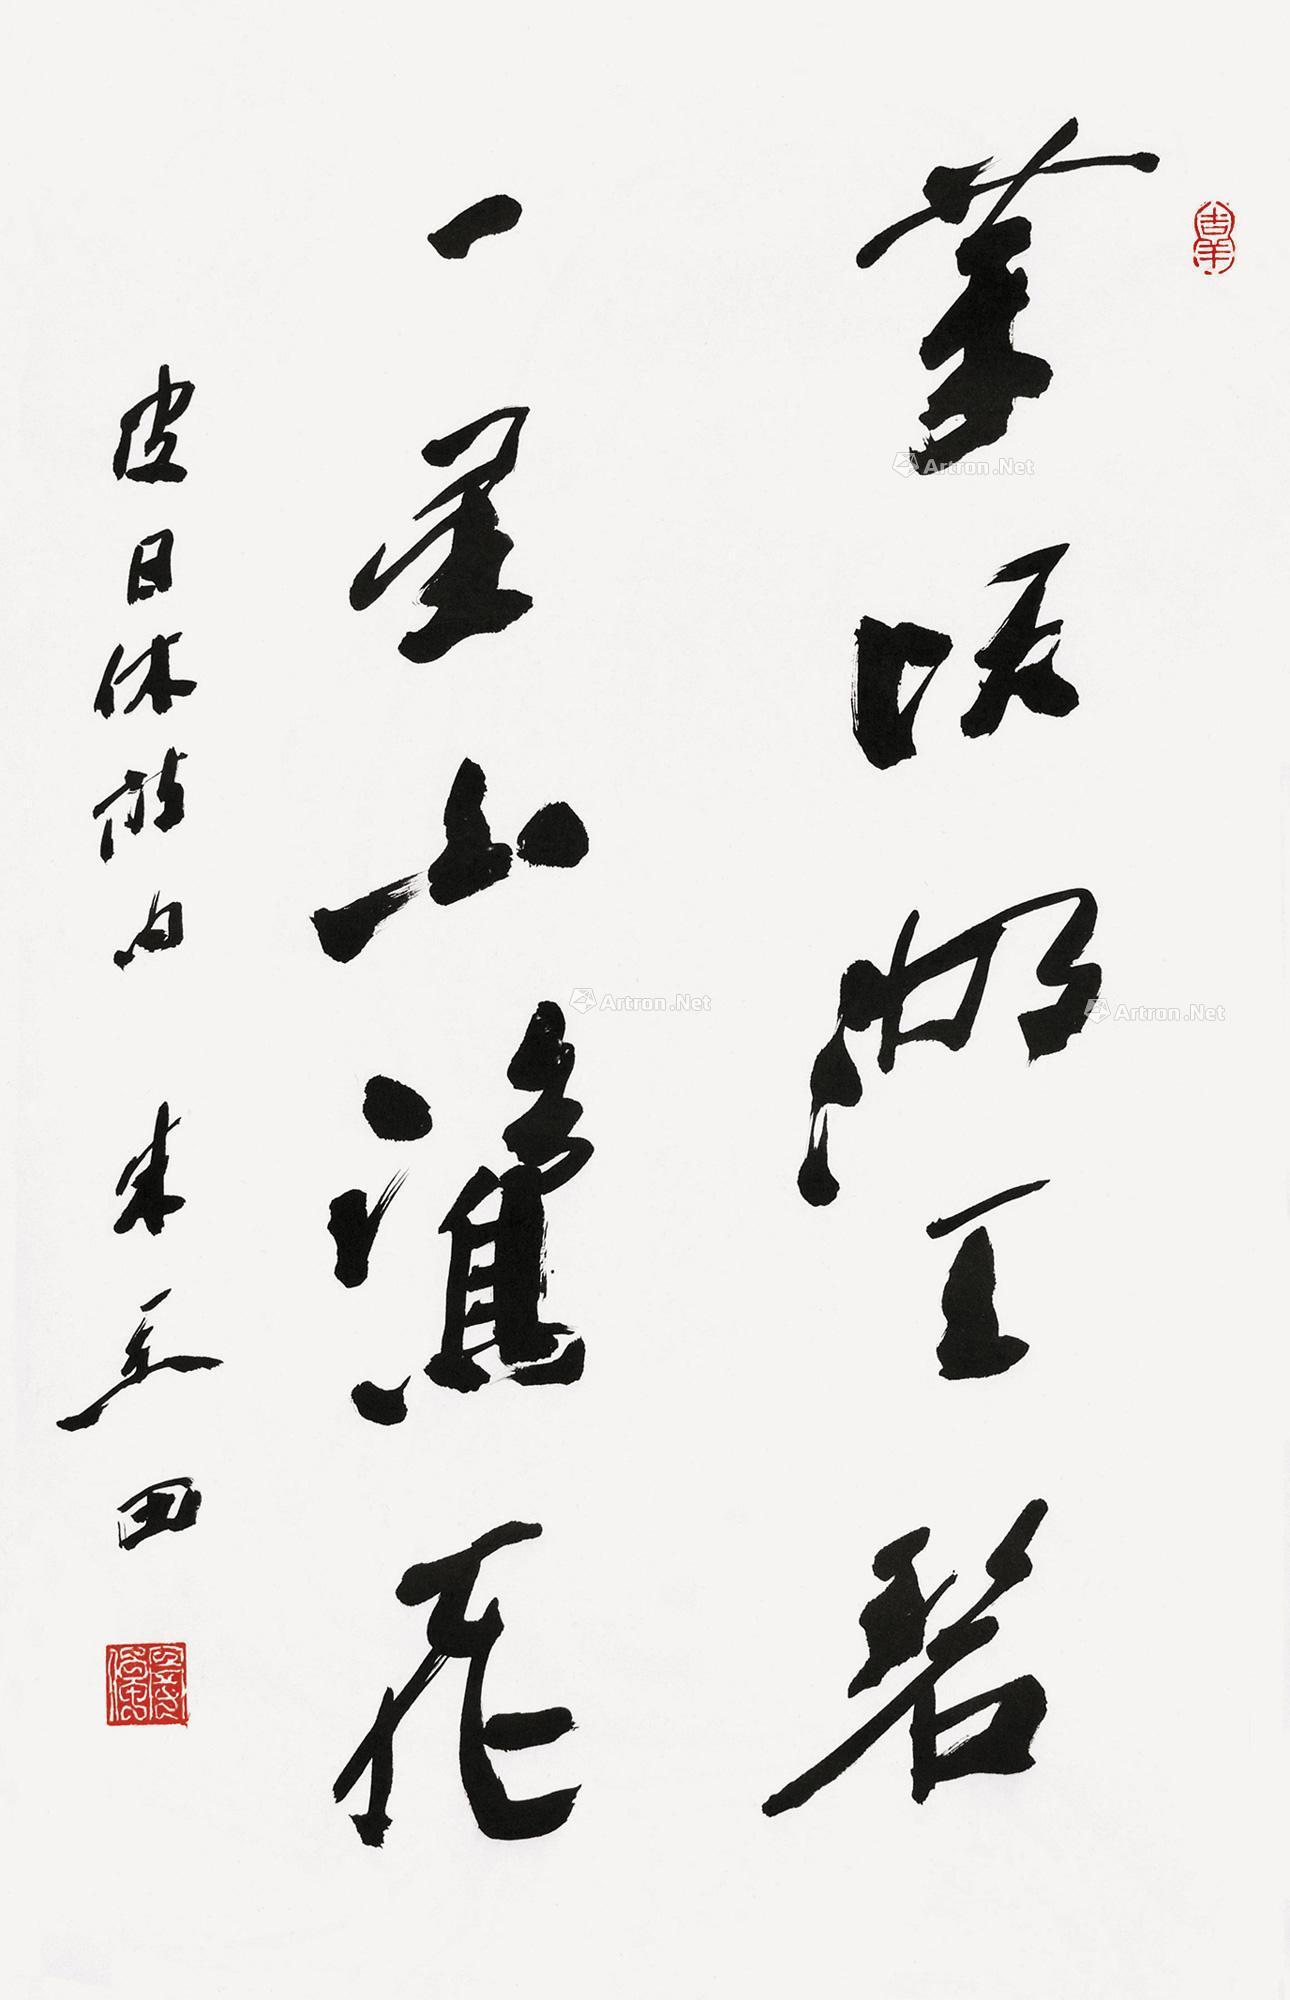 萬頃湖天碧
一星山飛
皮日休詩句 朱关田
吉羊
Artron.Net
Artron.Net
Artron.Net